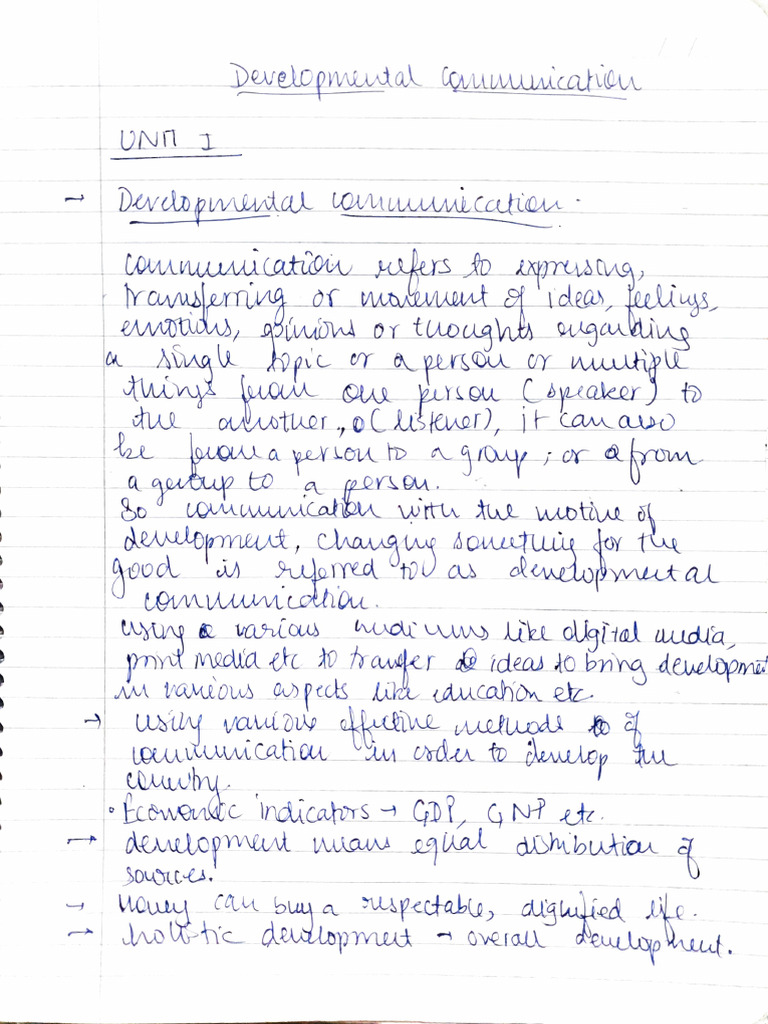 Developmental communication
UNIT I
→ Developmental communication.
communication refers to expressing,
transferring or movement of ideas, feelings,
emotions, opinions or thoughts regarding
a single topic or a person or multiple
things from one person (speaker) to
the another, (listener), it can also
be from a person to a group; or from
a group to a person.
So communication with the motive of
development, changing something for the
good is referred to as developmental
communication.
using various mediums like digital media,
print media etc to transfer ideas to bring development
in various aspects like education etc.
→ using various effective methods of
communication in order to develop the
country.
• Economic indicators → GDP, GNP etc.
→ development means equal distribution of
sources.
→ Money can buy a respectable, dignified life.
→ holistic development → overall development.